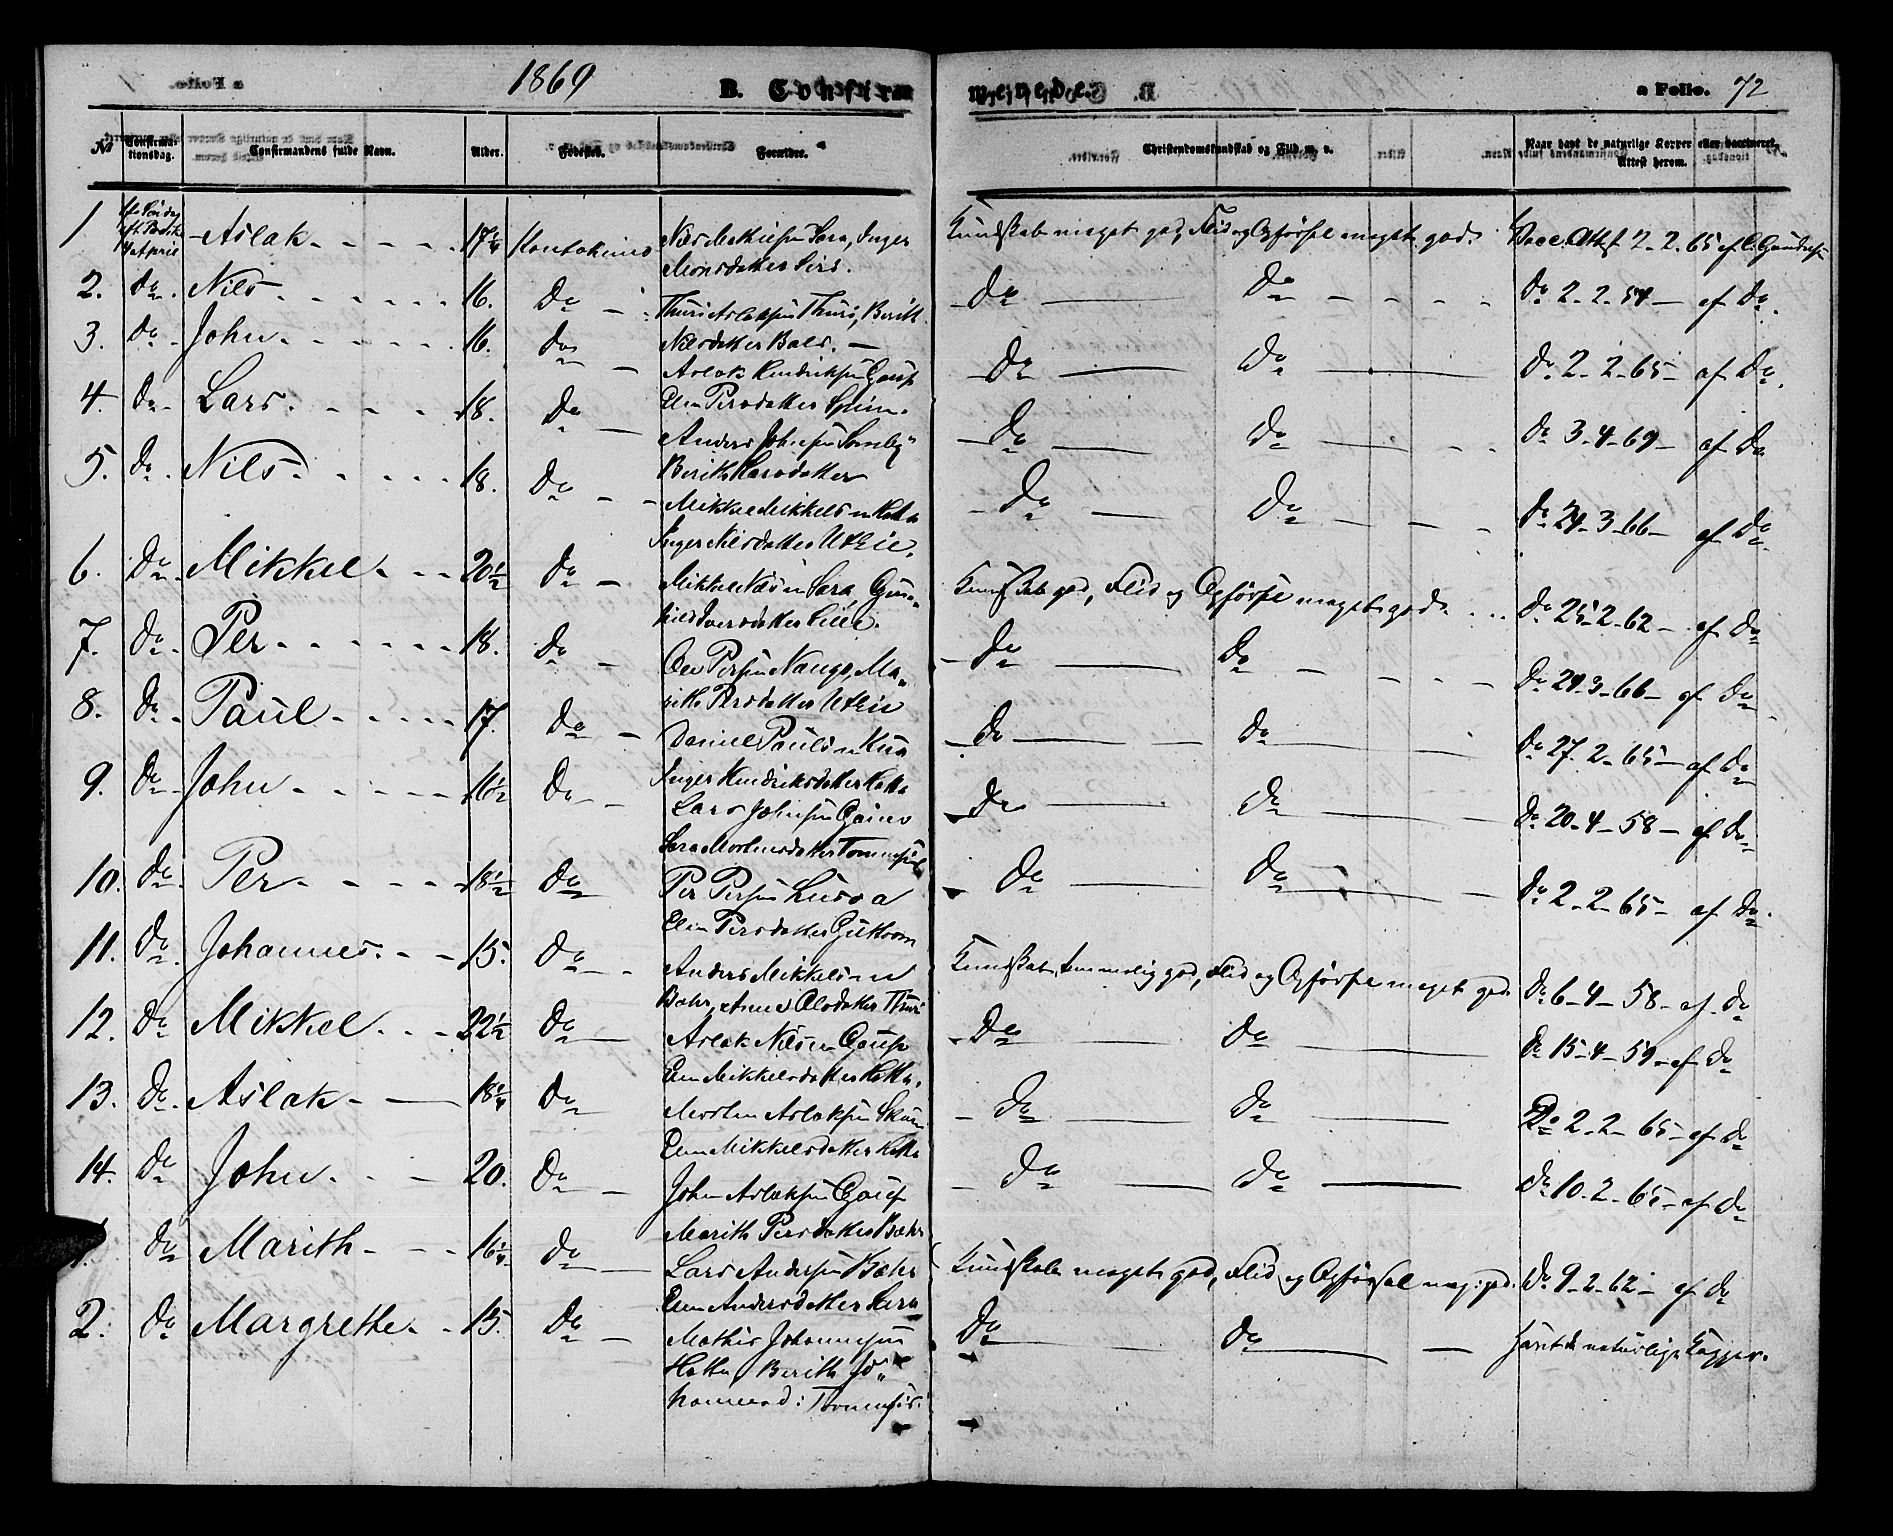 1869 B. Confirmerede. a Folio. 72
No Confirmationsdag. Confirmandens fulde Navn. Alder. Fødested. Forældre. Christendomskundskab og Flid m. v. Naar havt de naturlige Kopper eller vaccineret, Attest herom.
1 1ste Søndag eft. Paaske 4 April Aslak 17 1/4 Kautokeino Nils Mathisen Sara, Inger Kundskab meget god, Flid og Opførsel meget god. Vacc. Att. 2-2-65 af C. Gundersen
Monsdatter Siri.
2. Do Nils 16. Do Thuri Aslaksen Thuri, Berith Do Do Do 2-2-54 af Do.
3. Do John 16. Do Nilsdatter Bals. Do Do Do 2-2-65 af Do.
Aslak Hendriksen Gaup
4. Do Lars. 18. Do Elen Persdatter Spein. Do Do Do 3-4-69 af Do
Anders Johnsen Somby
5. Do Nils 18. Do Berith Larsdatter Do Do Do 24-3-66 af Do.
Mikkel Mikkelsen Hætta
Inger Nilsdatter Utsie.
6. Do Mikkel 20 1/2 Do Mikkel Nilsen Sara, Gun- Kundskab god, Flid og Opførsel meget god. Do 25-2-62 af Do
hild Iversdatter
7. Do Per 18. Do Ole Persen Nango, Ma- Do Do Do 24-3-66 af Do
rith Persdatter Utsie
8. Do Paul 17. Do Daniel Paulsen Do Do Do 27-2-65 af Do
9. Do John 16 1/2 Do Inger Hendriksdatter Hætta Do Do Do 20-4-58 af Do
Lars Johnsen Gaino
Sara Mortensdatter Tornensis
10. Do Per 18 1/2 Do Per Persen Do Do Do 2-2-65 af Do.
Elen Persdatter
11. Do Johannes 15. Do Anders Mikkelsen Kundskab temmelig god, Flid og Opførsel meget god Do 6-4-58 af Do
Bæhr, Anne Olsdatter Thuri
12. Do Mikkel 22 1/2 Do Aslak Nilsen Gaup Do Do Do 15-4-59 af Do
Elen Mikkelsdatter Hætta.
13. Do Aslak 18 1/4 Do Morten Aslaksen Skum Do Do Do 2-2-65 af Do
Elen Mikkelsdatter Hætta
14. Do John 20. Do John Aslaksen Gaup Do Do Do 10-2-65 af Do
Marith Persdatter Bæhr
1. Do Marith 16 1/4 Do Lars Andersen Bæhr Kundskab meget god, Flid og Opførsel meg: god. Do 9-2-62 af Do
Elen Andersdatter Sara
2. Do Margrethe 15. Do Mathis Johannesen Do Do Havt de naturlige Kopper.
Hætta Berith Jo-
hannesd: Tornensis.